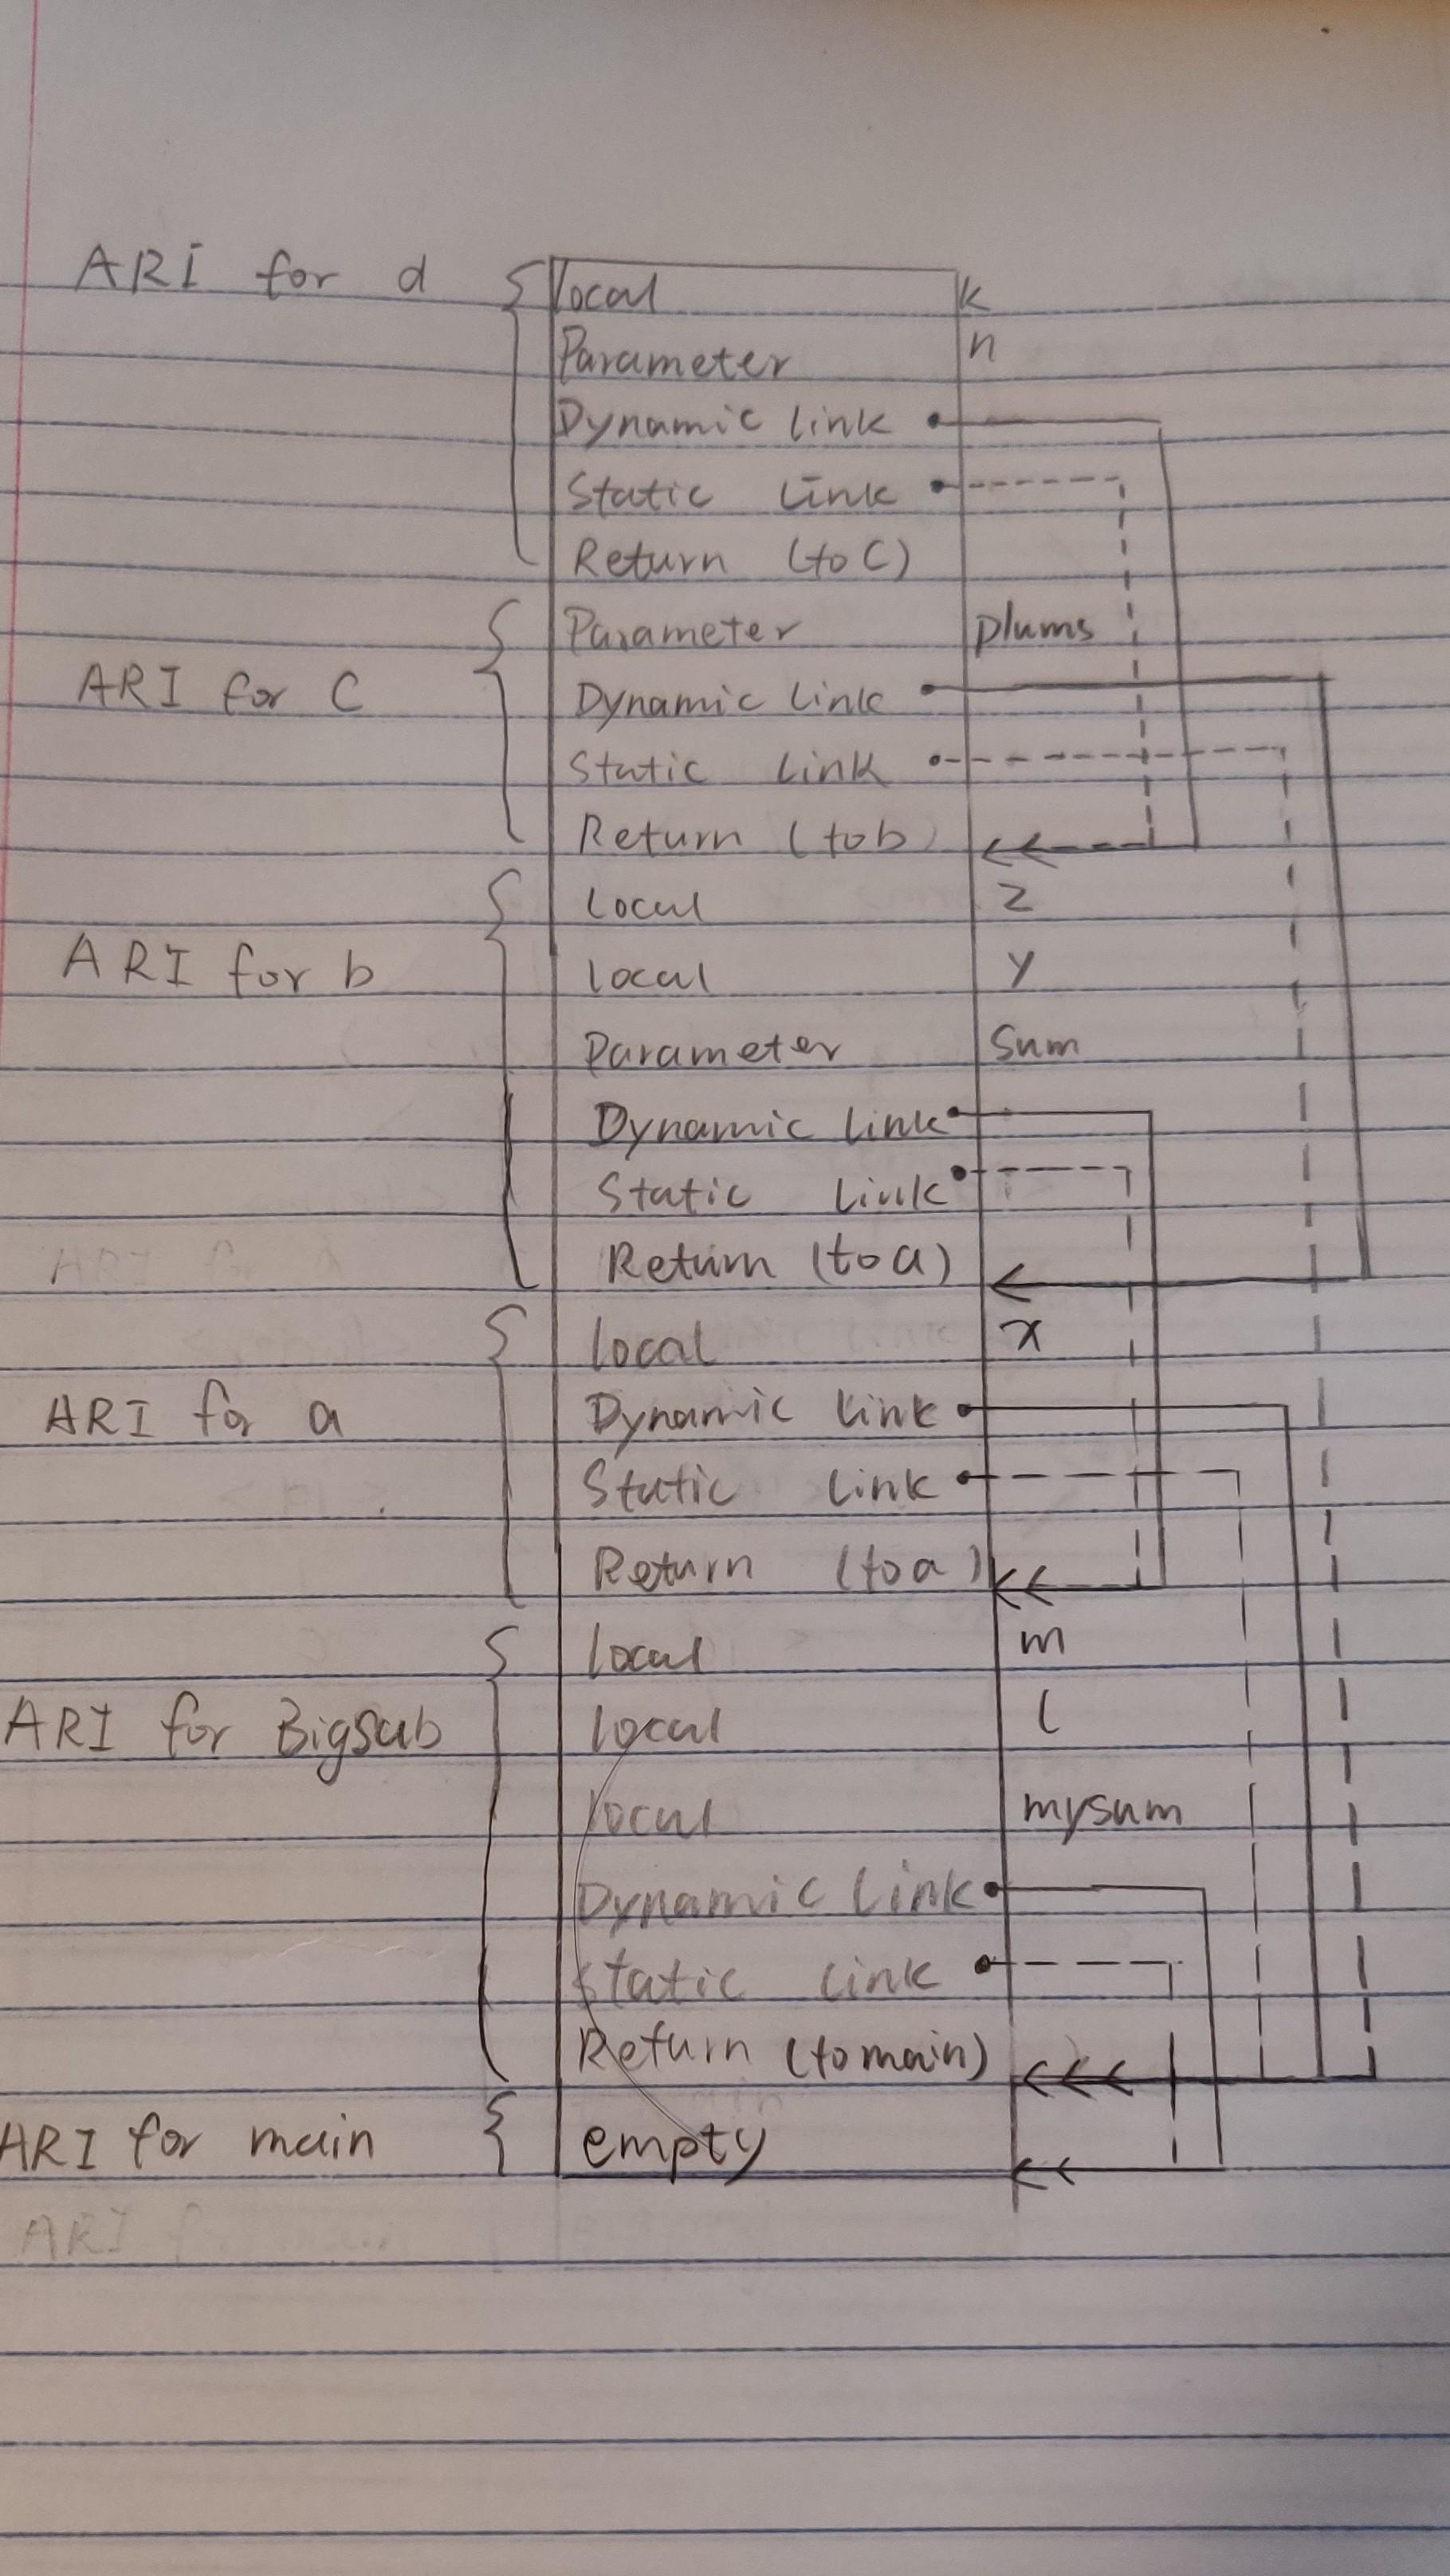 ARI for d Local k
Parameter n
Dynamic link
Static link
Return (to C)
Parameter plums
ARI for C Dynamic link
Static link
Return (to b)
Local Z
ARI for b Local Y
Parameter Sum
Dynamic link
Static link
Return (to a)
Local X
ARI for a Dynamic link
Static link
Return (to a)
Local m
ARI for Bigsub Local l
Local mysum
Dynamic link
Static link
Return (to main)
ARI for main empty